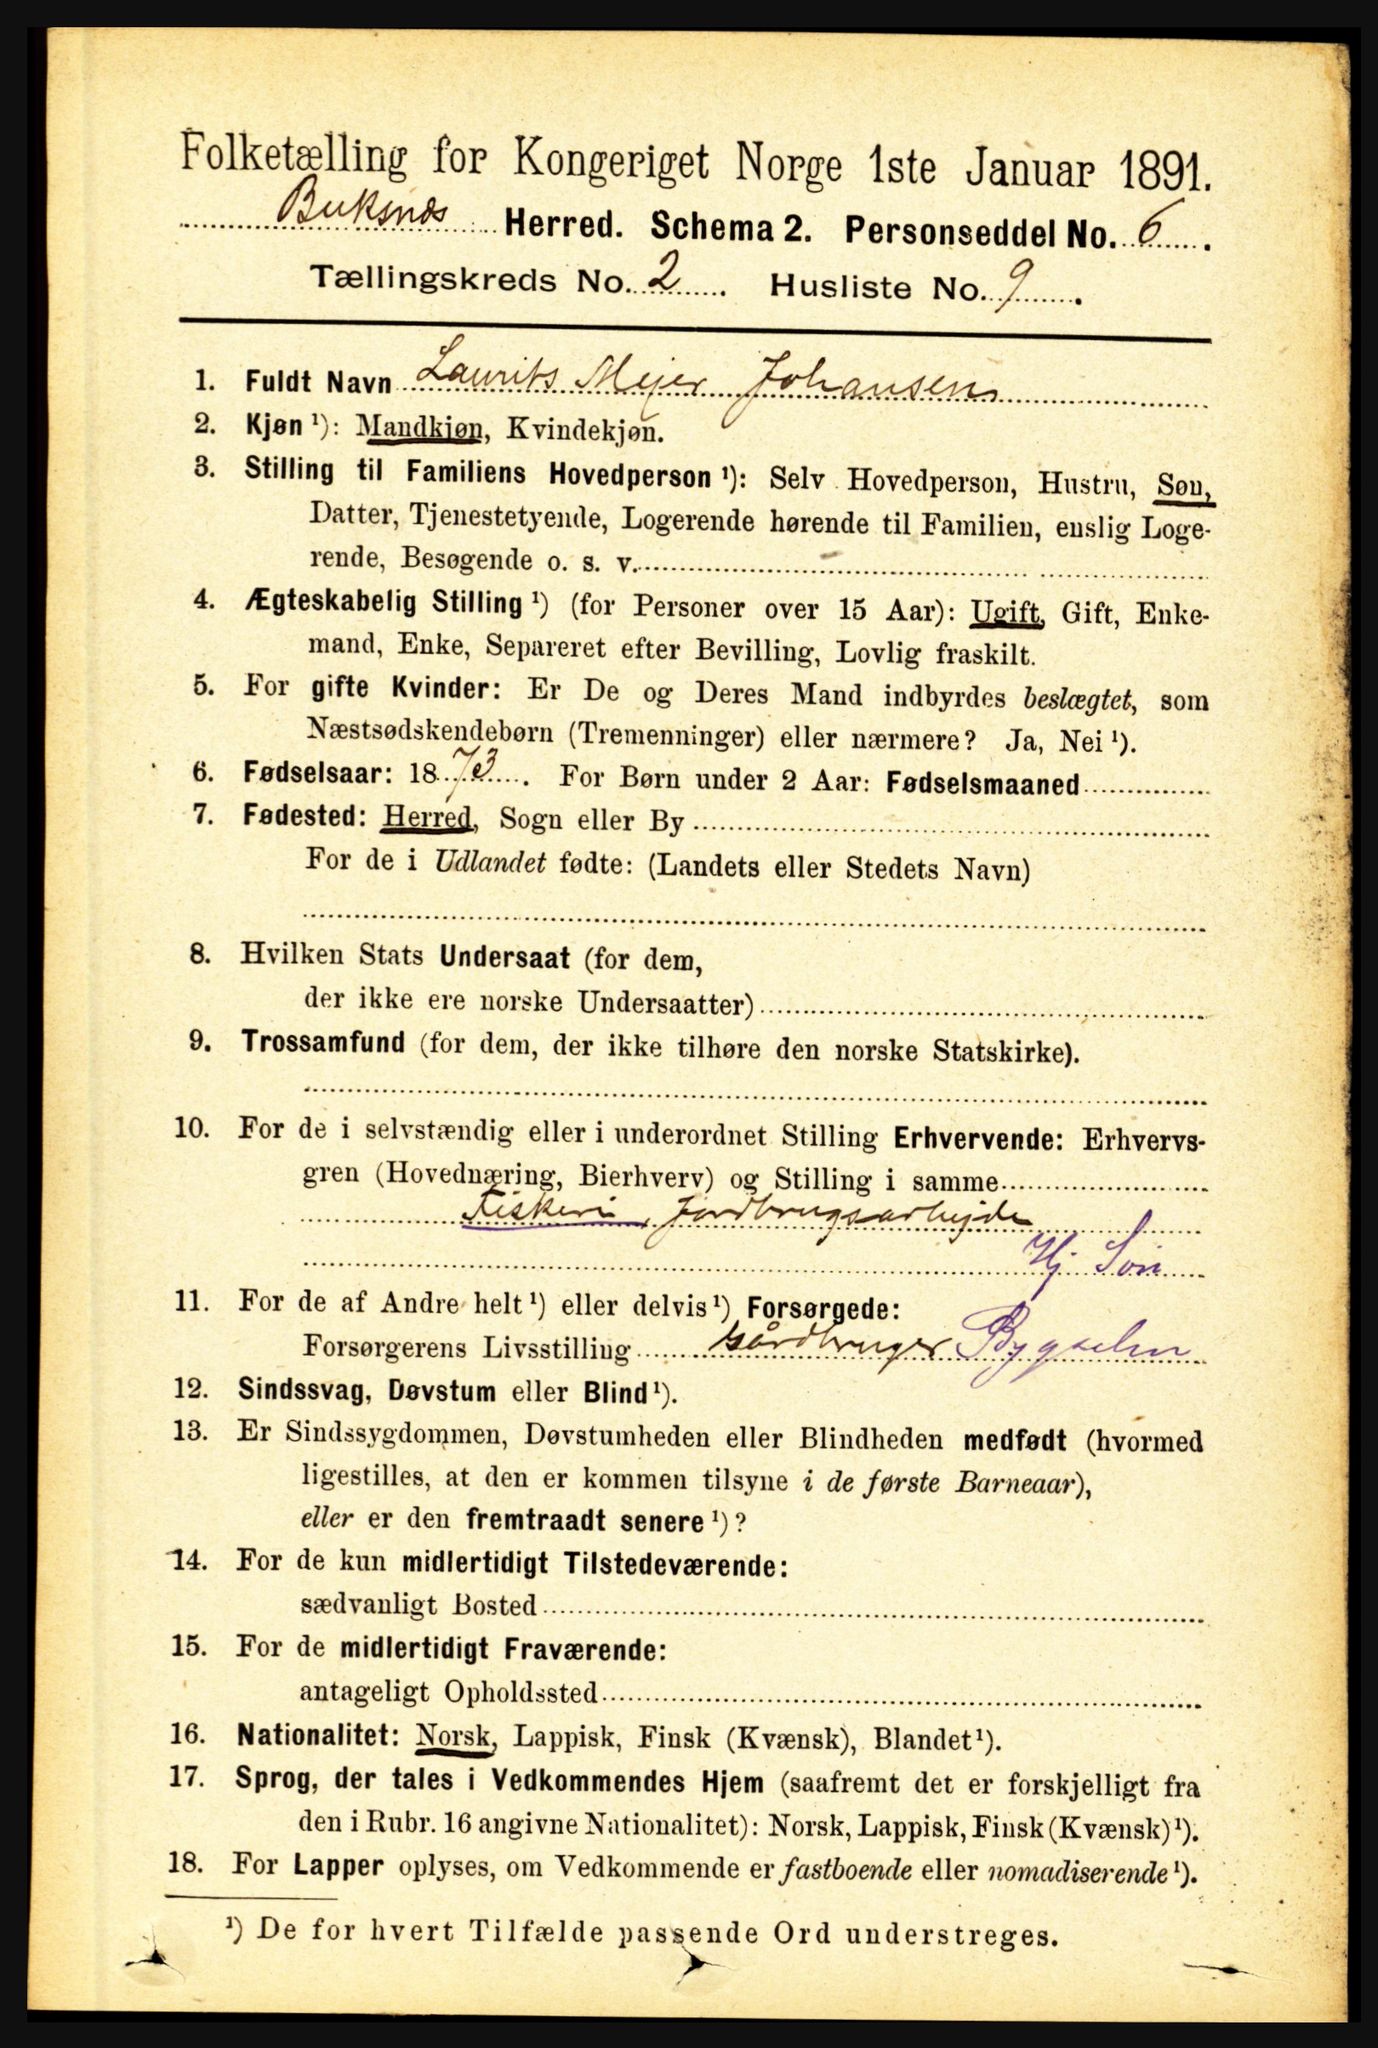 Folketælling for Kongeriget Norge 1ste Januar 1891.
Buksnæs Herred. Schema 2. Personseddel No. 6.
Tællingskreds No. 2. Husliste No. 9.
1. Fuldt Navn Laurits Mejer Johansen
2. Kjøn ¹): Mandkjøn, Kvindekjøn.
3. Stilling til Familiens Hovedperson ¹): Selv Hovedperson, Hustru, Søn,
Datter, Tjenestetyende, Logerende hørende til Familien, enslig Loge-
rende, Besøgende o. s. v.
4. Ægteskabelig Stilling ¹) (for Personer over 15 Aar): Ugift, Gift, Enke-
mand, Enke, Separeret efter Bevilling, Lovlig fraskilt.
5. For gifte Kvinder: Er De og Deres Mand indbyrdes beslægtet, som
Næstsødskendebørn (Tremenninger) eller nærmere? Ja, Nei ¹).
6. Fødselsaar: 1873. For Børn under 2 Aar: Fødselsmaaned
7. Fødested: Herred, Sogn eller By
For de i Udlandet fødte: (Landets eller Stedets Navn)
8. Hvilken Stats Undersaat (for dem,
der ikke ere norske Undersaatter)
9. Trossamfund (for dem, der ikke tilhøre den norske Statskirke).
10. For de i selvstændig eller i underordnet Stilling Erhvervende: Erhvervs-
gren (Hovednæring, Bierhverv) og Stilling i samme
Fiskeri, Jordbrugsarbejde
Hj Søn
11. For de af Andre helt ¹) eller delvis ¹) Forsørgede:
Forsørgerens Livsstilling Gårdbruger Bygselm
12. Sindssvag, Døvstum eller Blind ¹).
13. Er Sindssygdommen, Døvstumheden eller Blindheden medfødt (hvormed
ligestilles, at den er kommen tilsyne i de første Barneaar),
eller er den fremtraadt senere ¹)?
14. For de kun midlertidigt Tilstedeværende:
sædvanligt Bosted
15. For de midlertidigt Fraværende:
antageligt Opholdssted
16. Nationalitet: Norsk, Lappisk, Finsk (Kvænsk), Blandet ¹).
17. Sprog, der tales i Vedkommendes Hjem (saafremt det er forskjelligt fra
den i Rubr. 16 angivne Nationalitet): Norsk, Lappisk, Finsk (Kvænsk) ¹).
18. For Lapper oplyses, om Vedkommende er fastboende eller nomadiserende ¹).
¹) De for hvert Tilfælde passende Ord understreges.